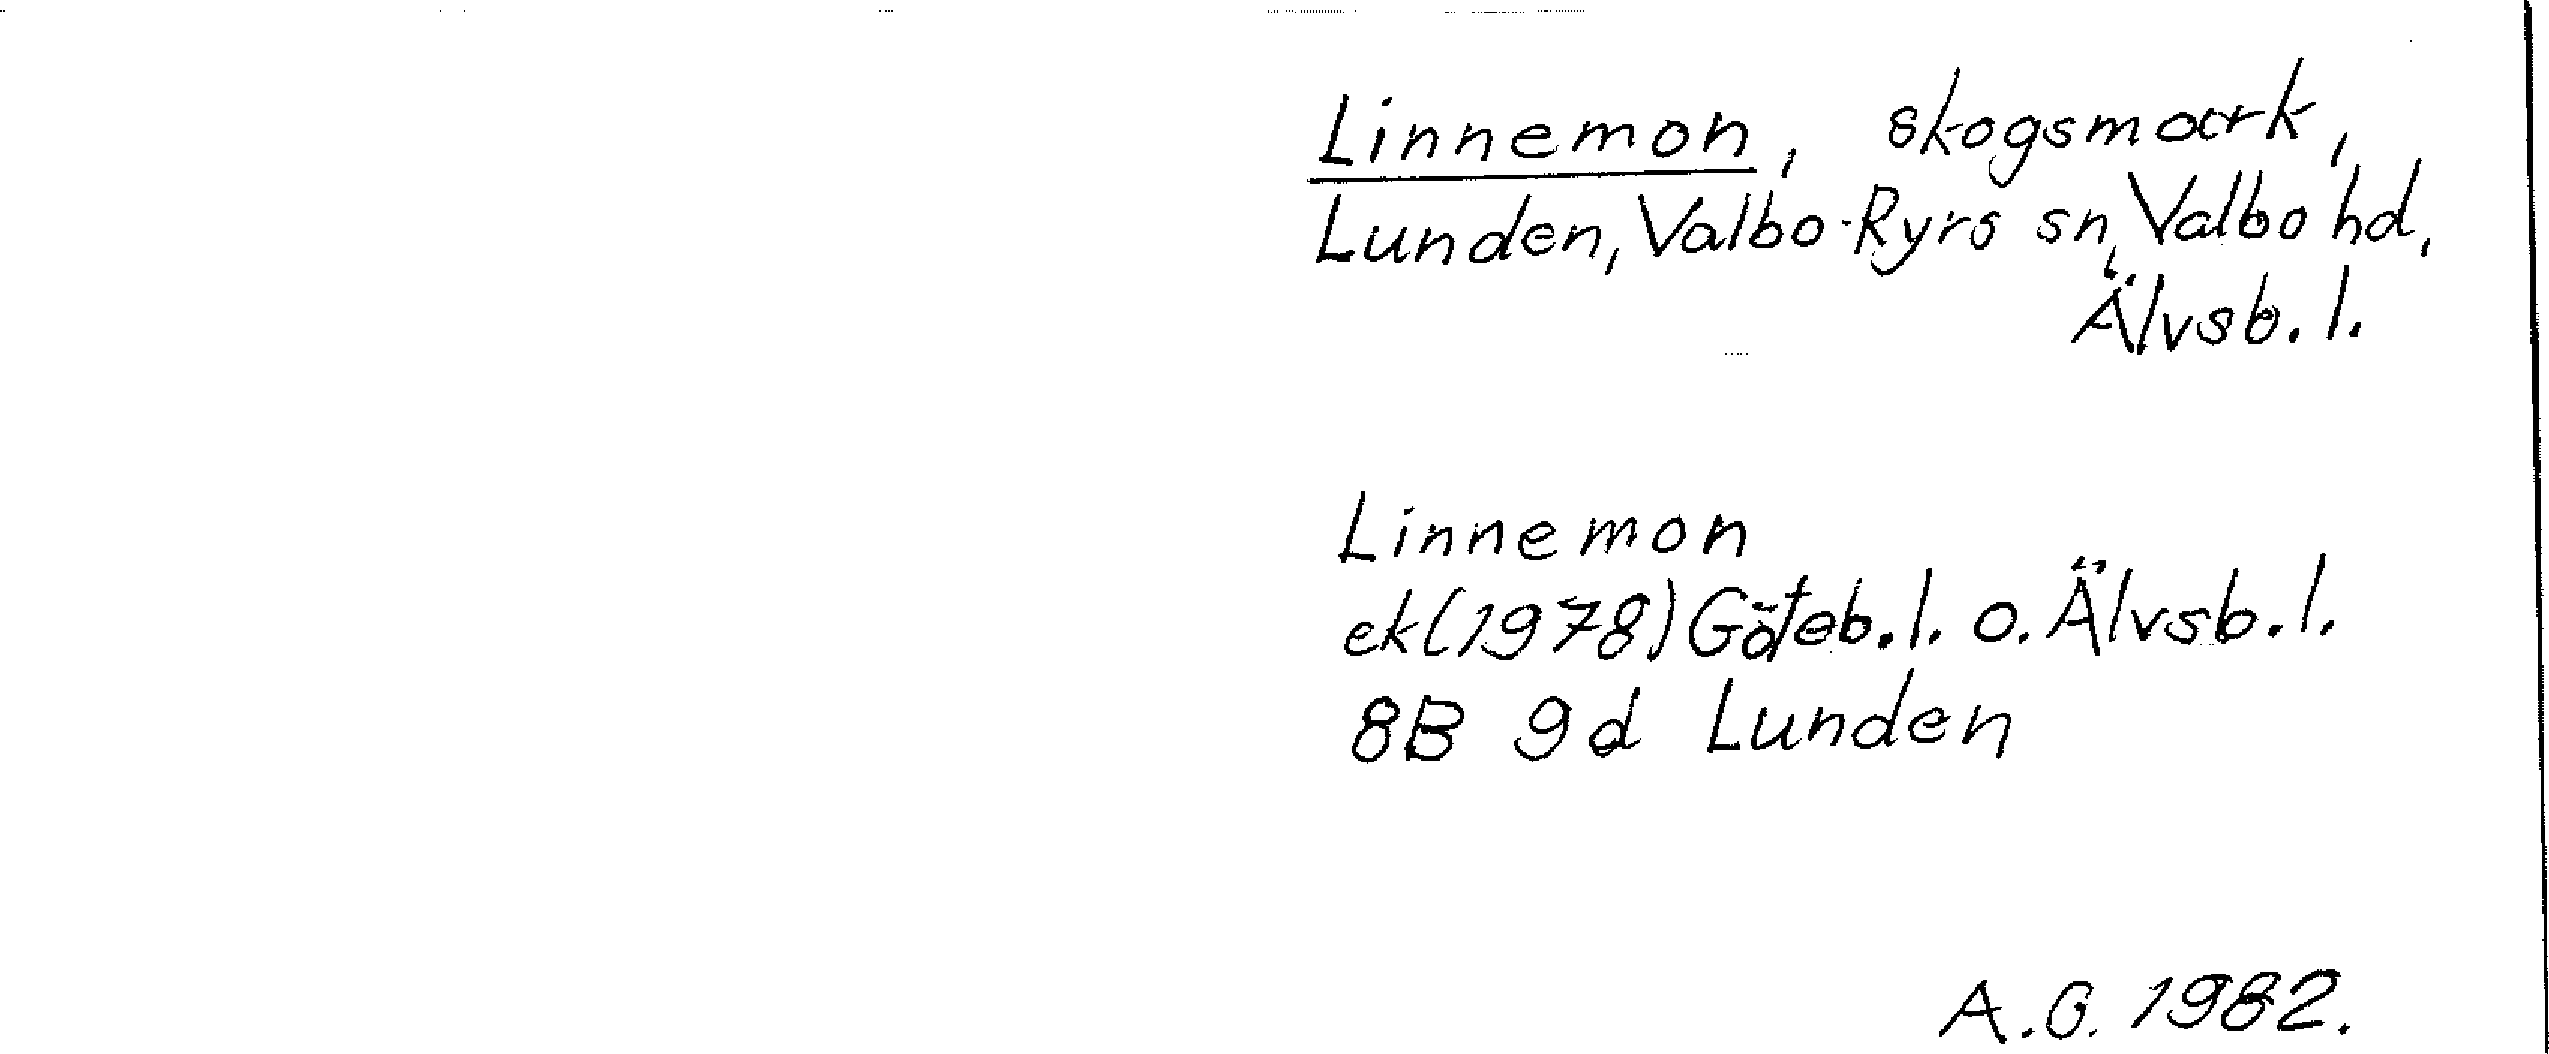 Linnemon, skogsmark,
Lunden, Valbo-Ryrs sn, Valbo hd,
Älvsb. l.
Linnemon
ek (1978) Göteb. l. o. Älvsb. l.
8B 9d Lunden
A.G. 1982.